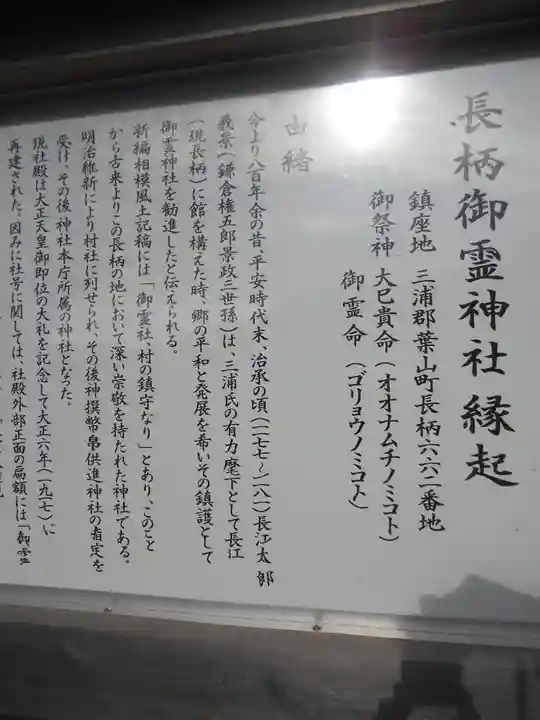 長柄御霊神社縁起
鎮座地 三浦郡葉山町長柄六六二番地
御祭神 大巳貴命(オオナムチノミコト)
御霊命(ゴリョウノミコト)
由緒
今より八百年余の昔、平安時代末、治承の頃(一一七七〜一一八一)長江太郎
義景(鎌倉権五郎景政三世孫)は、三浦氏の有力麾下として長江
(現長柄)に館を構えた時、郷の平和と発展を希いその鎮護として
御霊神社を勧進したと伝えられる。
新編相模風土記稿には「御霊社、村の鎮守なり」とあり、このこと
から古来よりこの長柄の地において深い崇敬を持たれた神社である。
明治維新により村社に列せられ、その後神撰幣帛供進神社の指定を
受け、その後神社本庁所属の神社となった。
現社殿は大正天皇御即位の大礼を記念して大正六年(一九一七)に
再建された。因みに社号に関しては、社殿外部正面の扁額には「御霊